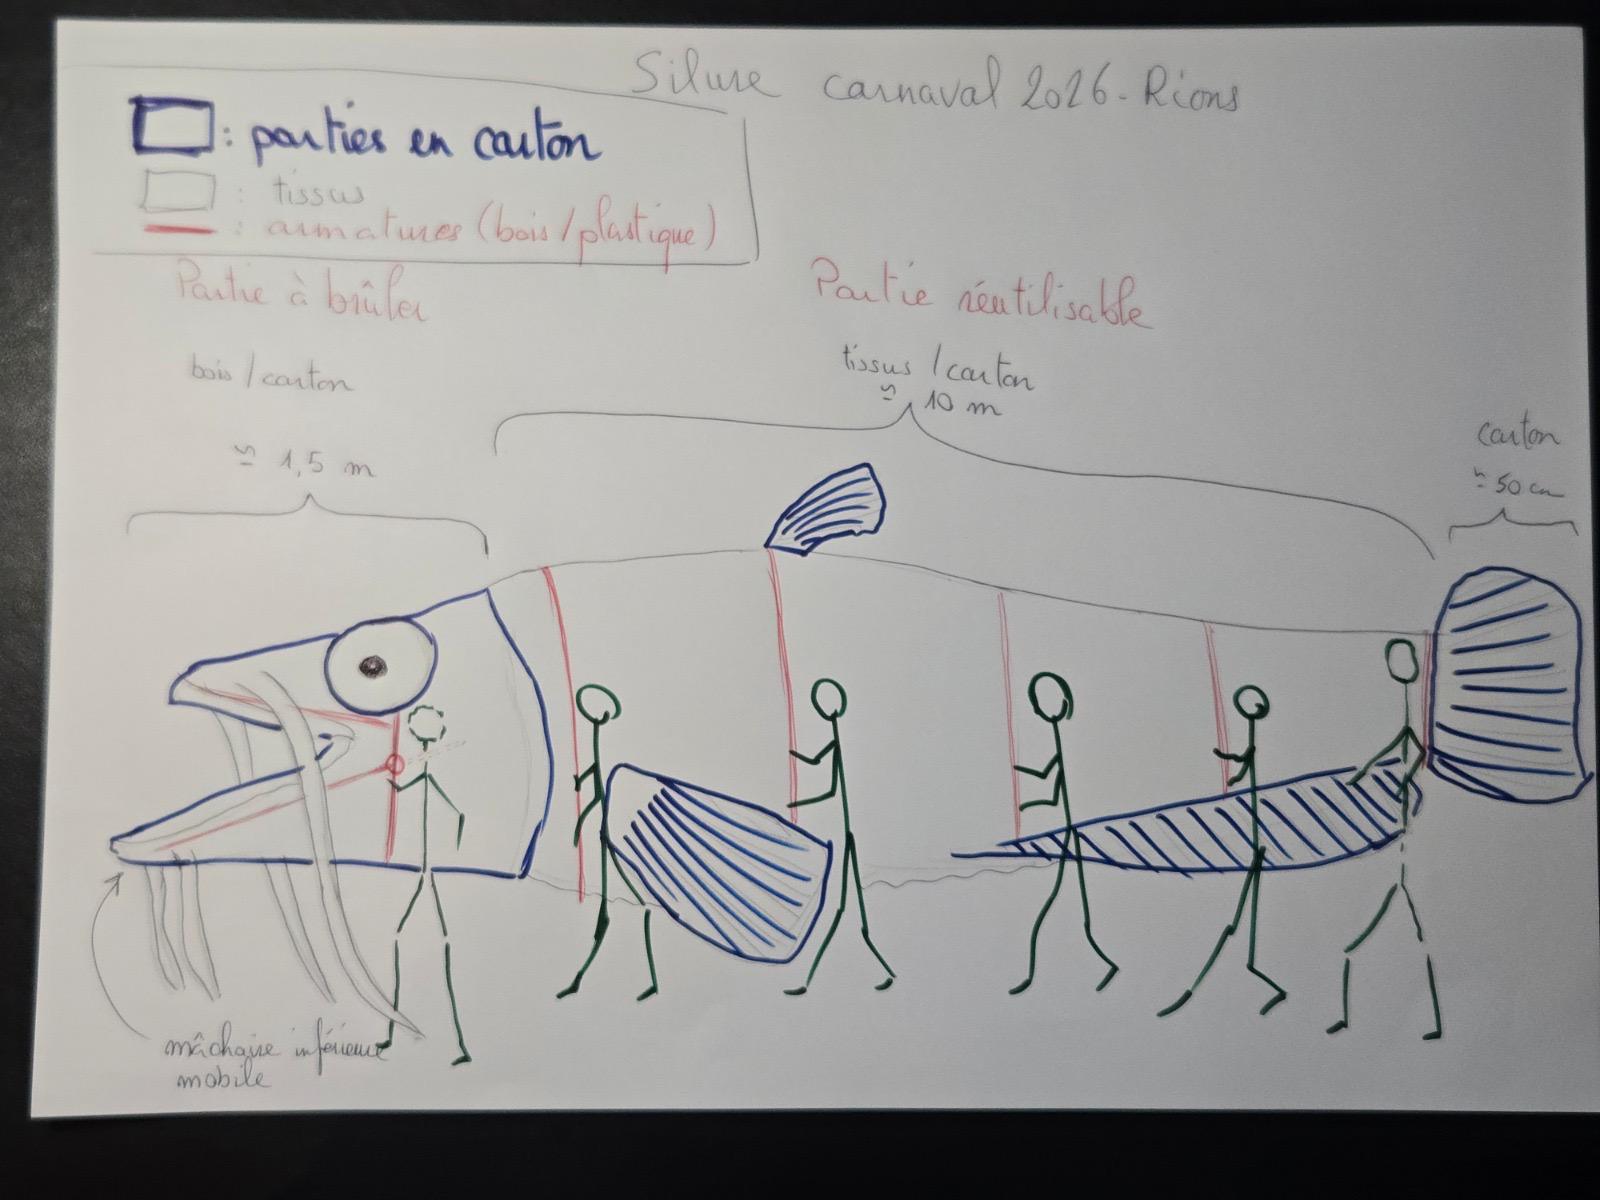 Silure carnaval 2026 - Rions
: parties en carton
: tissus
: armatures (bois/plastique)
Partie à brûler
Partie réutilisable
bois/carton
tissus/carton
≃ 10 m
carton
≃ 50 cm
≃ 1,5 m
mâchoire inférieure
mobile